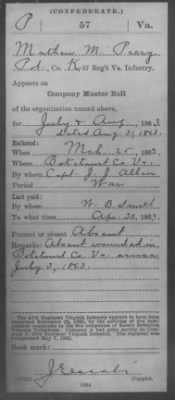 (CONFEDERATE.)
P 57 Va.
Mathew M. Peary
Pvt, Co. K, 57 Reg't Va. Infantry.
Appears on
Company Muster Roll
of the organization named above,
for July & Aug, 1863.
dated Aug 31, 1863.
Enlisted:
When Mch 25, 1862
Where Botetourt Co Va.
By whom Capt. J. J. Allen
Period War
Last paid:
By whom W. B. Smith
To what time Apr. 30, 1863.
Present or absent Absent
Remarks: Absent wounded in
Botetourt Co Va. since
July 3, 1863.
The 57th Regiment Virginia Infantry
Book mark:
Copyist.